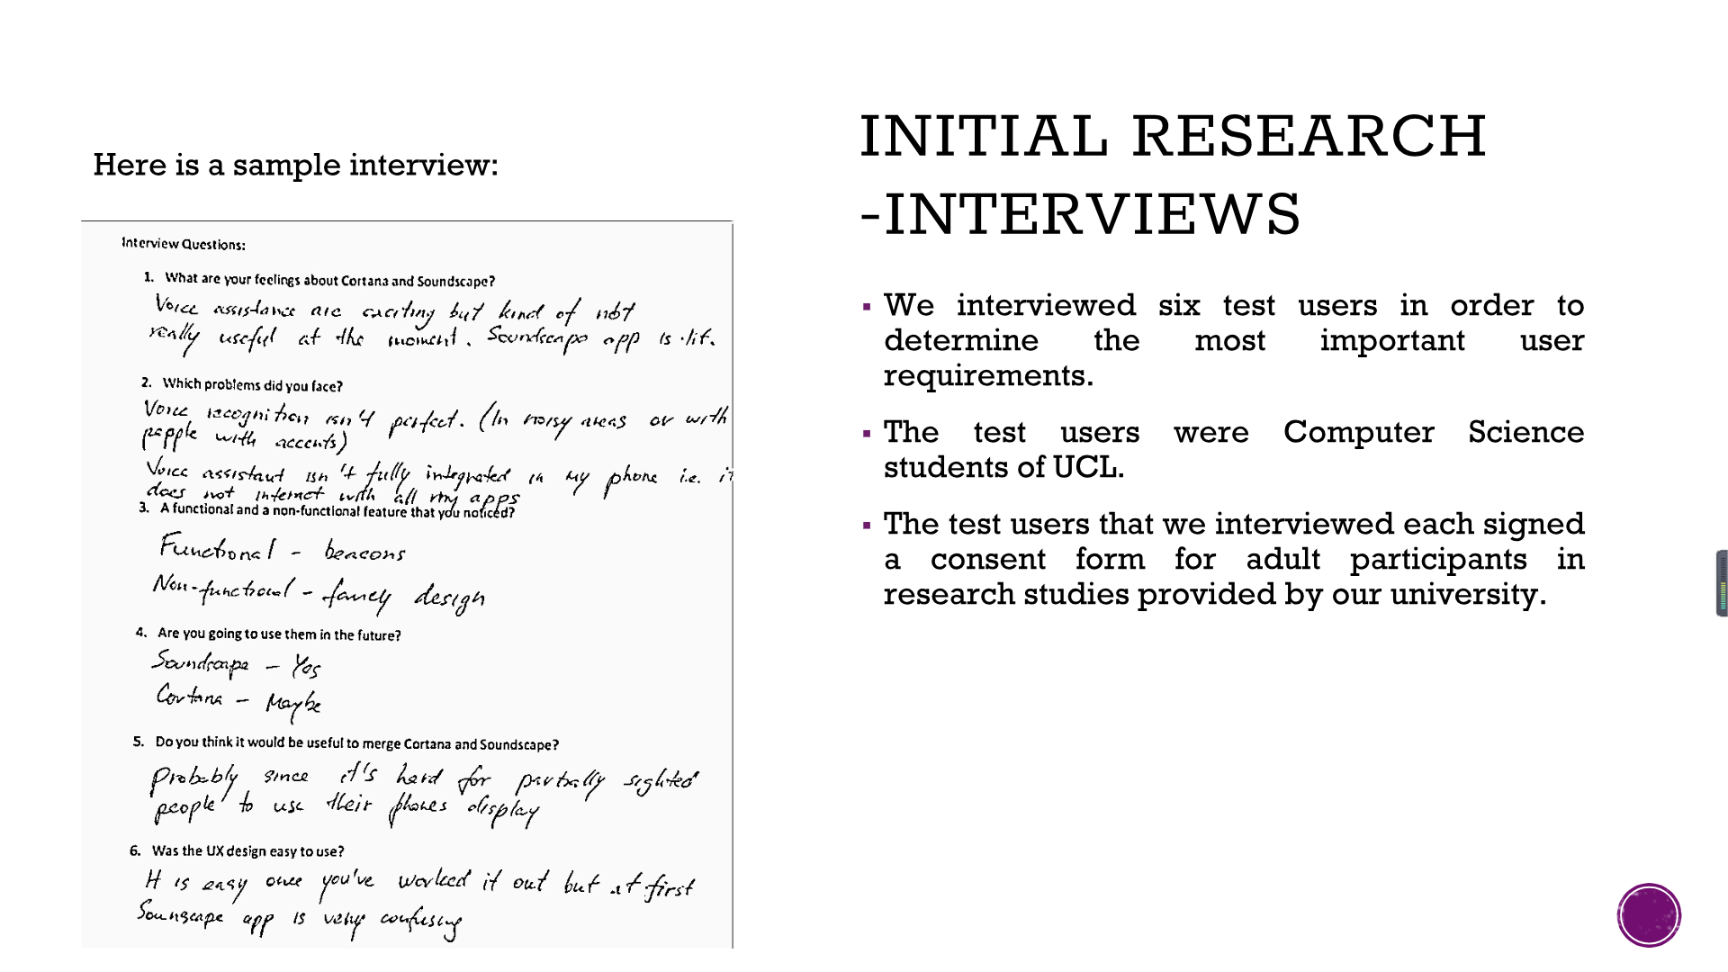 Here is a sample interview:
Interview Questions:
1. What are your feelings about Cortana and Soundscape?
Voice assistance are exciting but kind of not
really useful at the moment. Soundscape app is lit.
2. Which problems did you face?
Voice recognition isn't perfect. (In noisy areas or with
people with accents)
Voice assistant isn't fully integrated in my phone i.e. it
does not interact with all my apps
3. A functional and a non-functional feature that you noticed?
Functional - beacons
Non-functional - fancy design
4. Are you going to use them in the future?
Soundscape - Yes
Cortana - Maybe
5. Do you think it would be useful to merge Cortana and Soundscape?
Probably since it's hard for partially sighted
people to use their phones display
6. Was the UX design easy to use?
It is easy once you've worked it out but at first
Sounscape app is very confusing
INITIAL RESEARCH
-INTERVIEWS
▪ We interviewed six test users in order to
determine the most important user
requirements.
▪ The test users were Computer Science
students of UCL.
▪ The test users that we interviewed each signed
a consent form for adult participants in
research studies provided by our university.